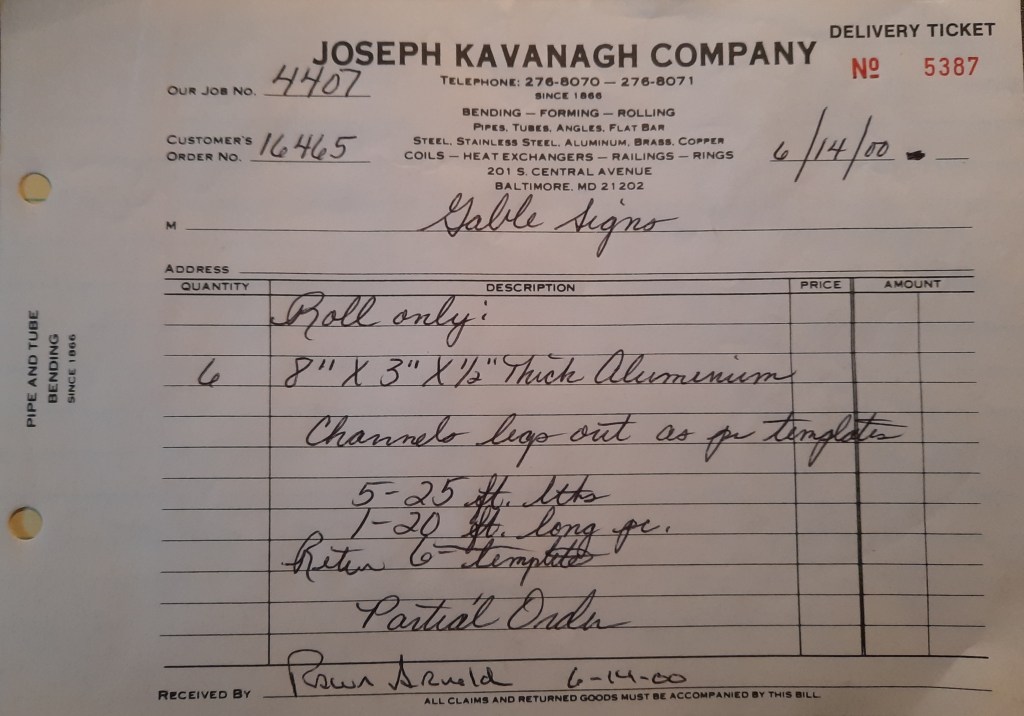 DELIVERY TICKET
JOSEPH KAVANAGH COMPANY
Nº 5387
TELEPHONE: 276-8070 — 276-8071
SINCE 1866
OUR JOB NO. 4407
BENDING — FORMING — ROLLING
PIPES, TUBES, ANGLES, FLAT BAR
CUSTOMER'S
ORDER NO. 16465
STEEL, STAINLESS STEEL, ALUMINUM, BRASS, COPPER
COILS — HEAT EXCHANGERS — RAILINGS — RINGS
6/14/00
201 S. CENTRAL AVENUE
BALTIMORE, MD 21202
M Gable Signs
ADDRESS
QUANTITY DESCRIPTION PRICE AMOUNT
Roll only:
6 8" X 3" X 1/2" Thick Aluminium
Channels legs out as pr templates
5-25 ft. lths
1-20 ft. long pc.
6 templates
Partial Order
RECEIVED BY Arnold 6-14-00
ALL CLAIMS AND RETURNED GOODS MUST BE ACCOMPANIED BY THIS BILL.
PIPE AND TUBE
BENDING
SINCE 1866